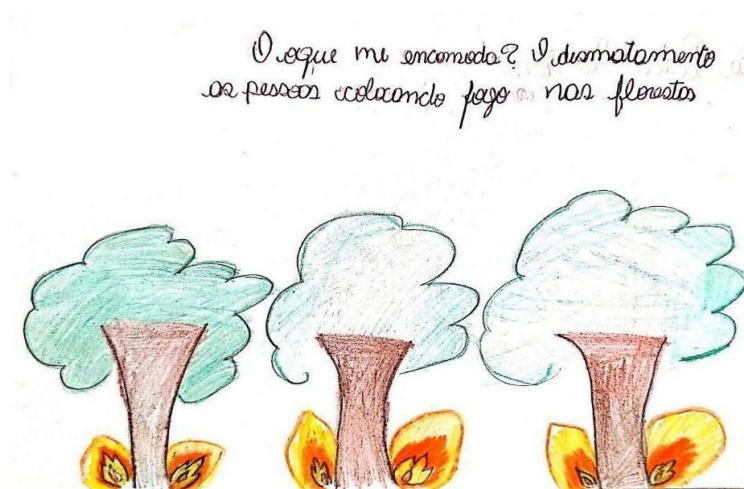 O oque me encomoda? O dismatamento
as pessoas colocando fogo nas florestas